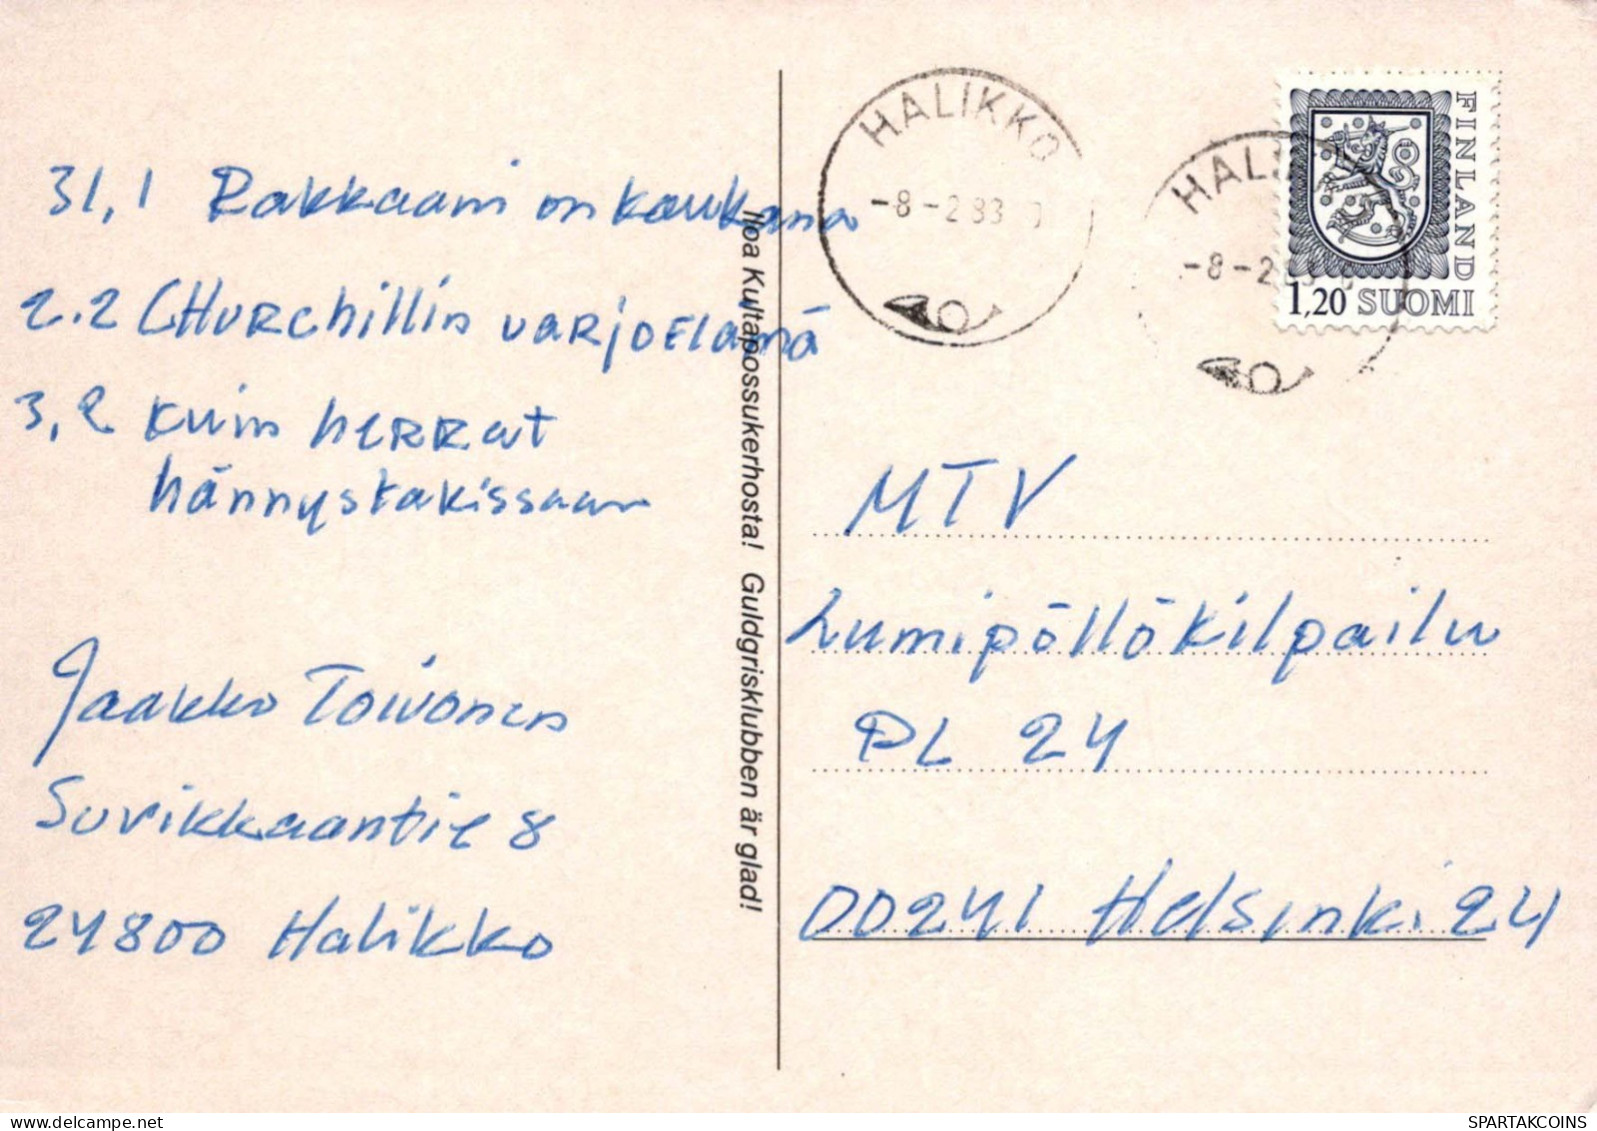 31,1 Rakkaani on kaukana
2.2 CHURchillin varjoElämä
3,2 Kuin herrat
hännystakissaan
Jaakko Toivonen
Suvikkaantie 8
24800 Halikko
Iloa Kultapossukerhosta! Guldgrisklubben är glad!
HALIKKO
-8-2 83
HALI
-8-2
FINLAND
1,20 SUOMI
MTV
Lumipöllökilpailu
PL 24
00241 Helsinki 24
SPARTAKCOINS